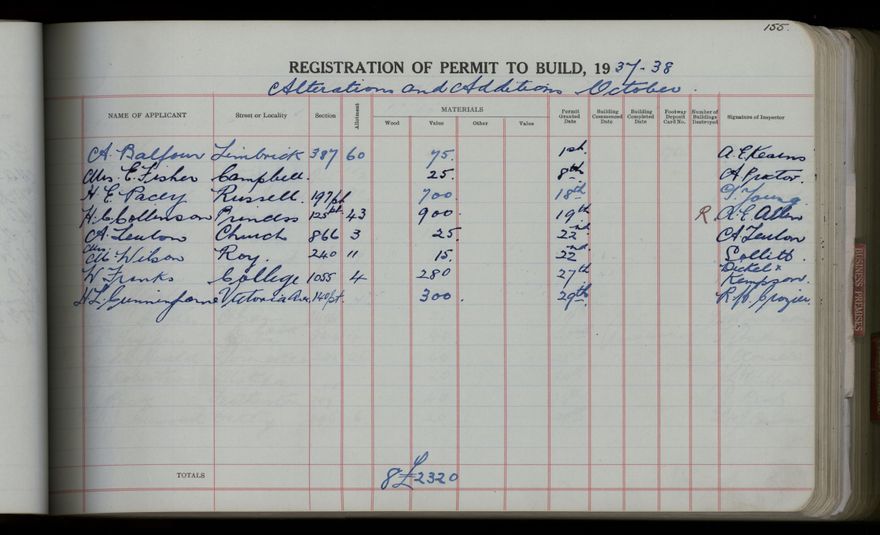 155.
REGISTRATION OF PERMIT TO BUILD, 1937-38
Alterations and Additions October.
NAME OF APPLICANT Street or Locality Section Allotment MATERIALS Wood Value Other Value Permit Granted Date Building Commenced Date Building Completed Date Footway Deposit Card No. Number of Buildings Destroyed Signature of Inspector
A. Balfour Limbrick 387 60 75. 1st. A. E. Kearns
Mrs. E. Fisher Campbell. 25. 8th. A Proctor.
H. E. Pacey Russell. 197pt 700. 18th
H. C. Collinson Princess 125pt. 43 900. 19th R. A. E. Allen
A. Church 866 3 25. 22nd. A.
Mrs. M. Wilson Roy. 240 11 15. 22nd. Collitt.
W Franks College 1055 4 280 27th Dickel & Kempson.
H. L. Victoria Ave, 140pt. 300. 29th R. H. Crozier.
TOTALS 8 £2320
BUSINESS PREMISES